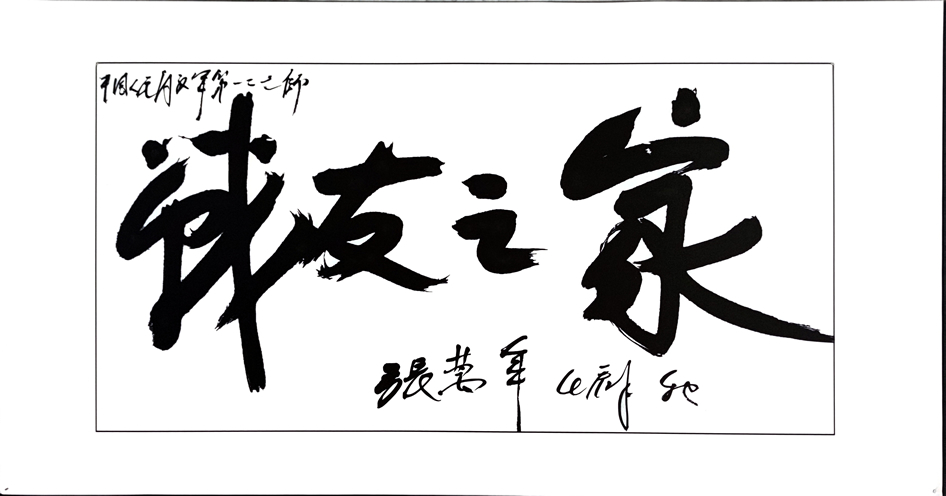 中国人民解放军第一二七师
战友之家
張萬年